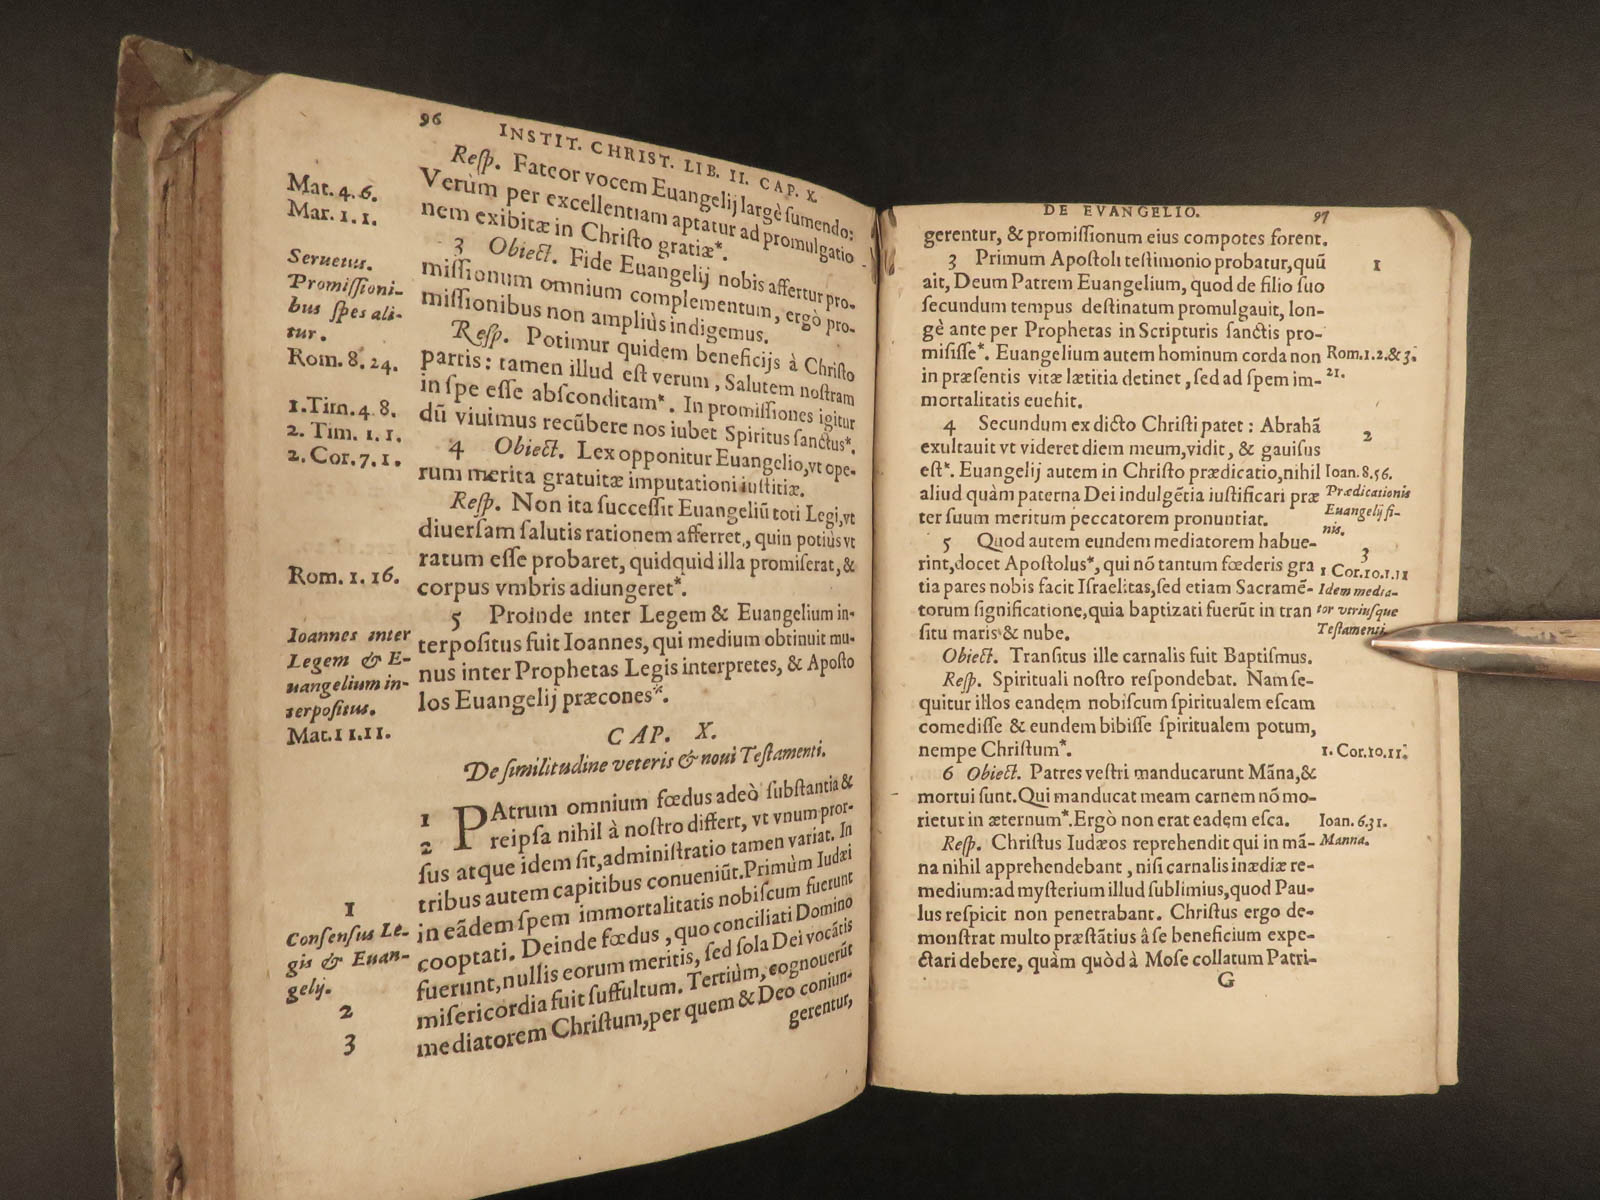 96
INSTIT. CHRIST. LIB. II. CAP. X.
Mat. 4. 6.
Mar. 1. 1.
Seruetus.
Promissioni-
bus spes ali-
tur.
Rom. 8. 24.
1. Tim. 4 8.
2. Tim. 1. 1.
2. Cor. 7. 1.
Rom. 1. 16.
Ioannes inter
Legem & E-
uangelium in-
terpositus.
Mat. 11. 11.
1
Consensus Le-
gis & Euan-
gelij.
2
3
Resp. Fateor vocem Euangelij largè sumendo:
Verùm per excellentiam aptatur ad promulgatio
nem exibitæ in Christo gratiæ*.
3 Obiect. Fide Euangelij nobis affertur pro-
missionum omnium complementum, ergò pro-
missionibus non ampliùs indigemus.
Resp. Potimur quidem beneficijs à Christo
partis: tamen illud est verum, Salutem nostram
in spe esse absconditam*. In promissiones igitur
dū viuimus recūbere nos iubet Spiritus sanctus*.
4 Obiect. Lex opponitur Euangelio, vt ope-
rum merita gratuitæ imputationi iustitiæ.
Resp. Non ita successit Euangeliū toti Legi, vt
diuersam salutis rationem afferret, quin potiùs vt
ratum esse probaret, quidquid illa promiserat, &
corpus vmbris adiungeret*.
5 Proinde inter Legem & Euangelium in-
terpositus fuit Ioannes, qui medium obtinuit mu-
nus inter Prophetas Legis interpretes, & Aposto
los Euangelij præcones*.
CAP. X.
De similitudine veteris & noui Testamenti.
1 PAtrum omnium fœdus adeò substantia &
2 reipsa nihil à nostro differt, vt vnum pror-
sus atque idem sit, administratio tamen variat. In
tribus autem capitibus conueniūt. Primùm Iudæi
in eādem spem immortalitatis nobiscum fuerunt
cooptati. Deinde fœdus, quo conciliati Domino
fuerunt, nullis eorum meritis, sed sola Dei vocātis
misericordia fuit suffultum. Tertiùm, cognouerūt
mediatorem Christum, per quem & Deo coniun-
gerentur,
DE EVANGELIO.
97
gerentur, & promissionum eius compotes forent.
3 Primum Apostoli testimonio probatur, quū
ait, Deum Patrem Euangelium, quod de filio suo
secundum tempus destinatum promulgauit, lon-
gè ante per Prophetas in Scripturis sanctis pro-
misisse*. Euangelium autem hominum corda non
in præsentis vitæ lætitia detinet, sed ad spem im-
mortalitatis euehit.
4 Secundum ex dicto Christi patet: Abrahā
exultauit vt videret diem meum, vidit, & gauisus
est*. Euangelij autem in Christo prædicatio, nihil
aliud quàm paterna Dei indulgētia iustificari præ
ter suum meritum peccatorem pronuntiat.
5 Quod autem eundem mediatorem habue-
rint, docet Apostolus*, qui nō tantum fœderis gra
tia pares nobis facit Israelitas, sed etiam Sacramē-
torum significatione, quia baptizati fuerūt in tran
situ maris & nube.
Obiect. Transitus ille carnalis fuit Baptismus.
Resp. Spirituali nostro respondebat. Nam se-
quitur illos eandem nobiscum spiritualem escam
comedisse & eundem bibisse spiritualem potum,
nempe Christum*.
6 Obiect. Patres vestri manducarunt Māna, &
mortui sunt. Qui manducat meam carnem nō mo-
rietur in æternum*. Ergò non erat eadem esca.
Resp. Christus Iudæos reprehendit qui in mā-
na nihil apprehendebant, nisi carnalis inædiæ re-
medium: ad mysterium illud sublimius, quod Pau-
lus respicit non penetrabant. Christus ergo de-
monstrat multo præstātius â se beneficium expe-
ctari debere, quàm quòd à Mose collatum Patri-
G
1
Rom. 1. 2. & 3.
21.
2
Ioan. 8. 56.
Prædicationis
Euangelij fi-
nis.
3
1 Cor. 10. 1. 11
Idem media-
tor vtriusque
Testamenti.
1. Cor. 10. 11.
Ioan. 6. 31.
Manna.